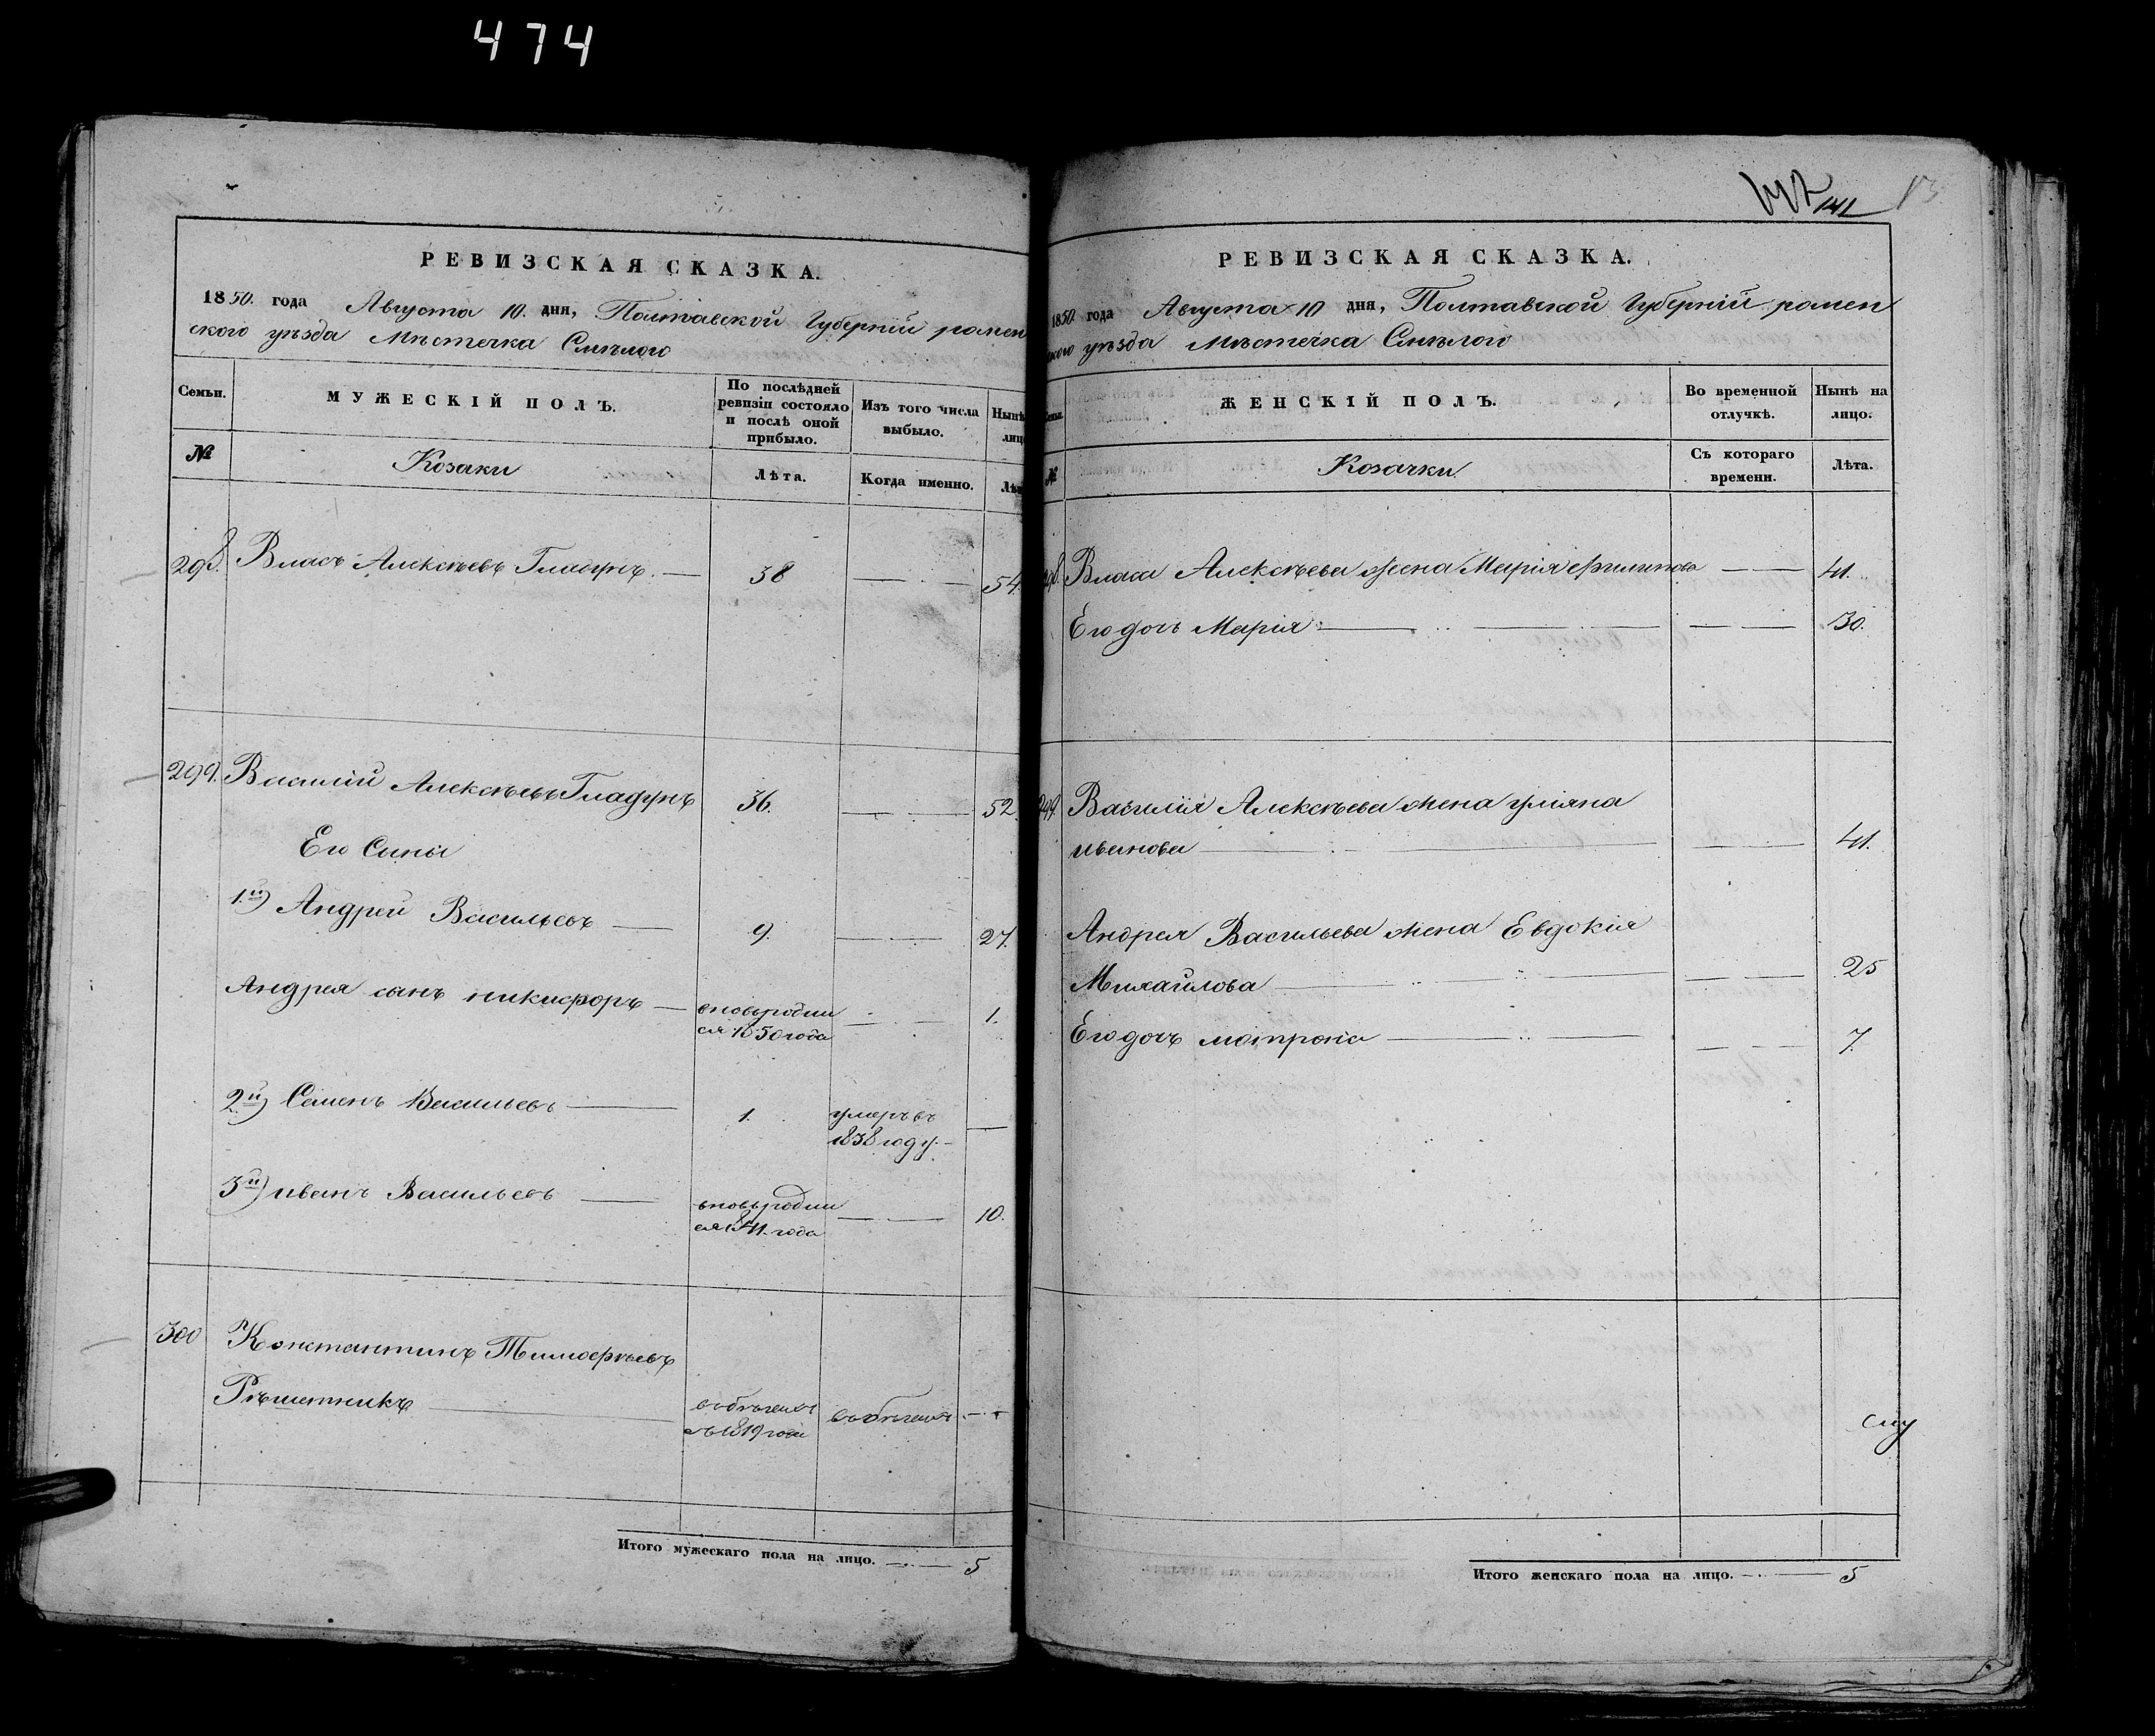 474
РЕВИЗСКАЯ СКАЗКА.
1850. года Августа 10. дня, Полтавской Губерніи ромен
ского уѣзда Мѣстечка Смѣлого
Семьи.
МУЖЕСКІЙ ПОЛЪ.
По послѣдней
ревизіи состояло
и послѣ оной
прибыло.
Изъ того числа
выбыло.
Нынѣ
лицо
№
Козаки
Лѣта.
Когда именно.
Лѣт
298. Власъ Алексѣевъ Гладунъ. — 38 — 54.
299. Василій Алексѣевъ Гладунъ 36. — 52.
Его Сыны
1.й) Андрей Васильевъ — 9. — 27.
Андрея сынъ никифоръ — вновьродил
ся 1850 года — 1.
2й) Семенъ Васильевъ — 1. умеръ въ
1838 году. —
3й) иванъ Васильевъ — вновьродил
ся 1841. года — 10.
300 Константинъ Тимофѣевъ
Рѣшетникъ — въ бѣгахъ въ бѣгахъ
съ 1819 года
Итого мужескаго пола на лицо. — 5
141
13
РЕВИЗСКАЯ СКАЗКА.
1850 года Августа 10 дня, Полтавской Губерніи ромен
ского уѣзда Мѣстечка Смѣлого
Семьи.
ЖЕНСКІЙ ПОЛЪ.
Во временной
отлучкѣ.
Нынѣ на
лицо.
№
Козачки
Съ котораго
времени.
Лѣта.
298. Власа Алексѣева жена Марія филипова — 41.
Его дочь Марія — 30.
299. Василія Алексѣева жена уліяна
иванова — 41.
Андрея Васильева жена Евдокія
Михайлова — 25
Его дочь матрона — 7.
Итого женскаго пола на лицо. — 5